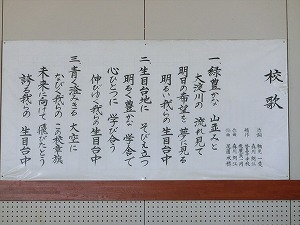 校歌
一 緑豊かな 山並みと
大淀川の 流れ見て
明日の希望を 夢に見る
明るい我らの 生目台中
二 生目台地に そびえ立つ
明るく豊かな 学舎で
心ひとつに 学び合う
伸びゆく我らの 生目台中
三 青く澄みきる 大空に
なびく我らの この校章旗
未来に向けて 価たとう
誇る我らの 生目台中